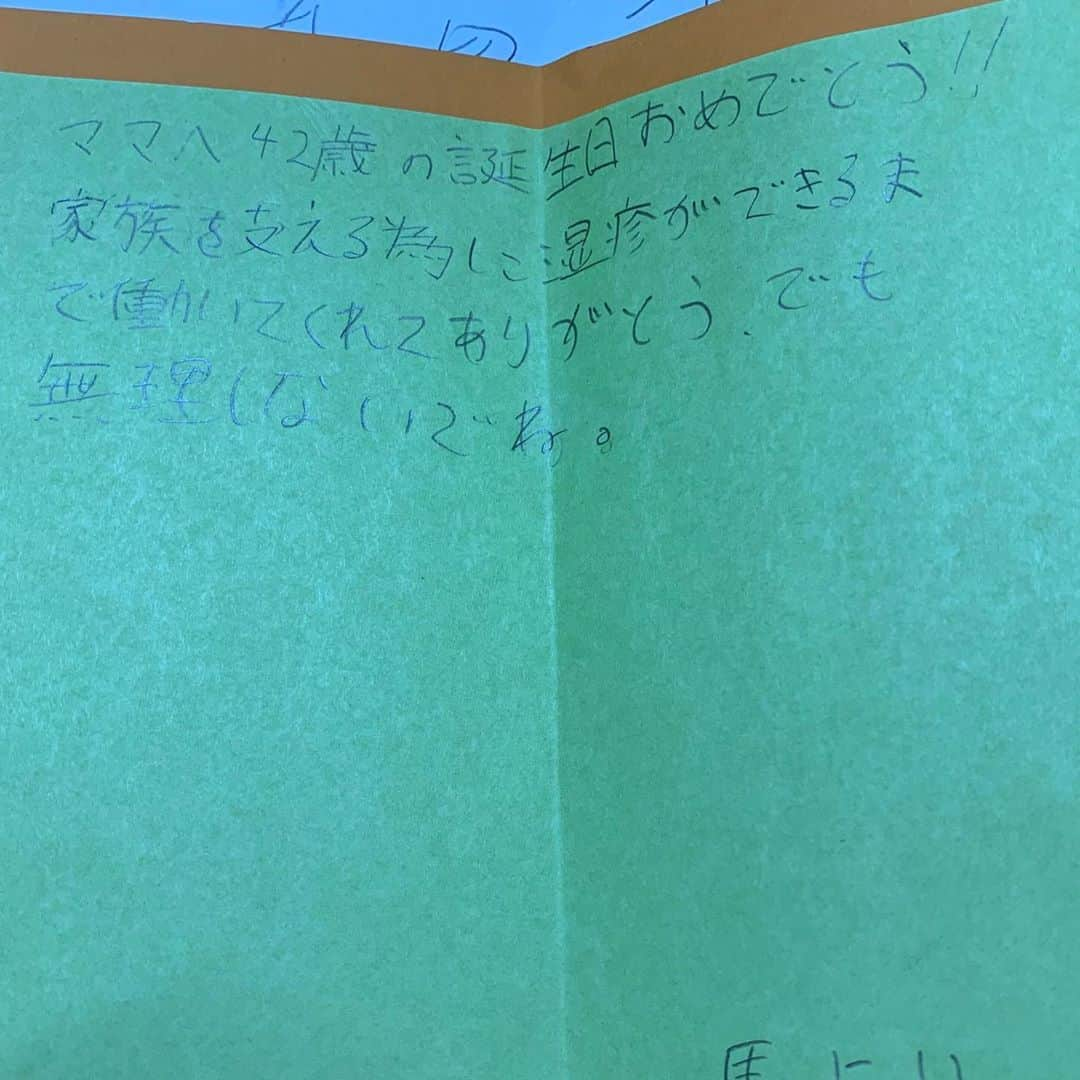 ママへ42歳の誕生日おめでとう!!
家族を支える為に湿疹ができるま
で働いてくれてありがとう、でも
無理しないでね。
より